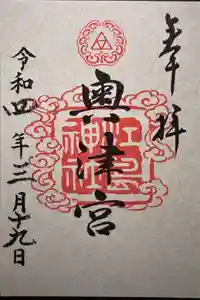 奉拝
奥津宮
江島神社
令和四年三月十九日